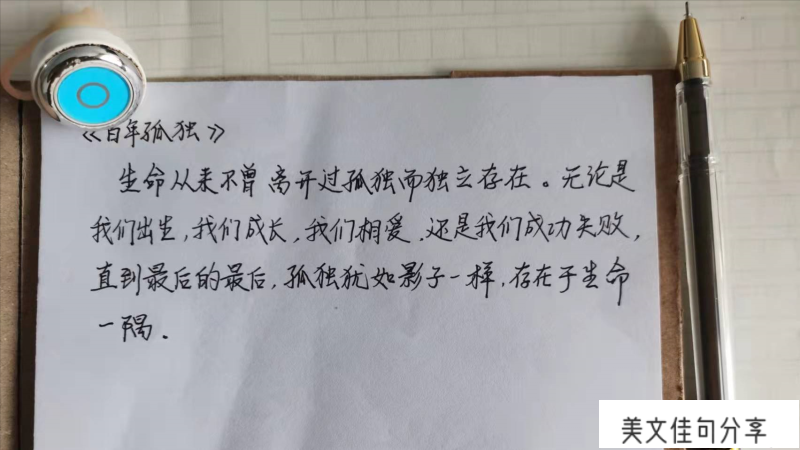 《百年孤独》
生命从来不曾离开过孤独而独立存在。无论是
我们出生,我们成长,我们相爱,还是我们成功失败,
直到最后的最后,孤独犹如影子一样,存在于生命
一隅.
美文佳句分享